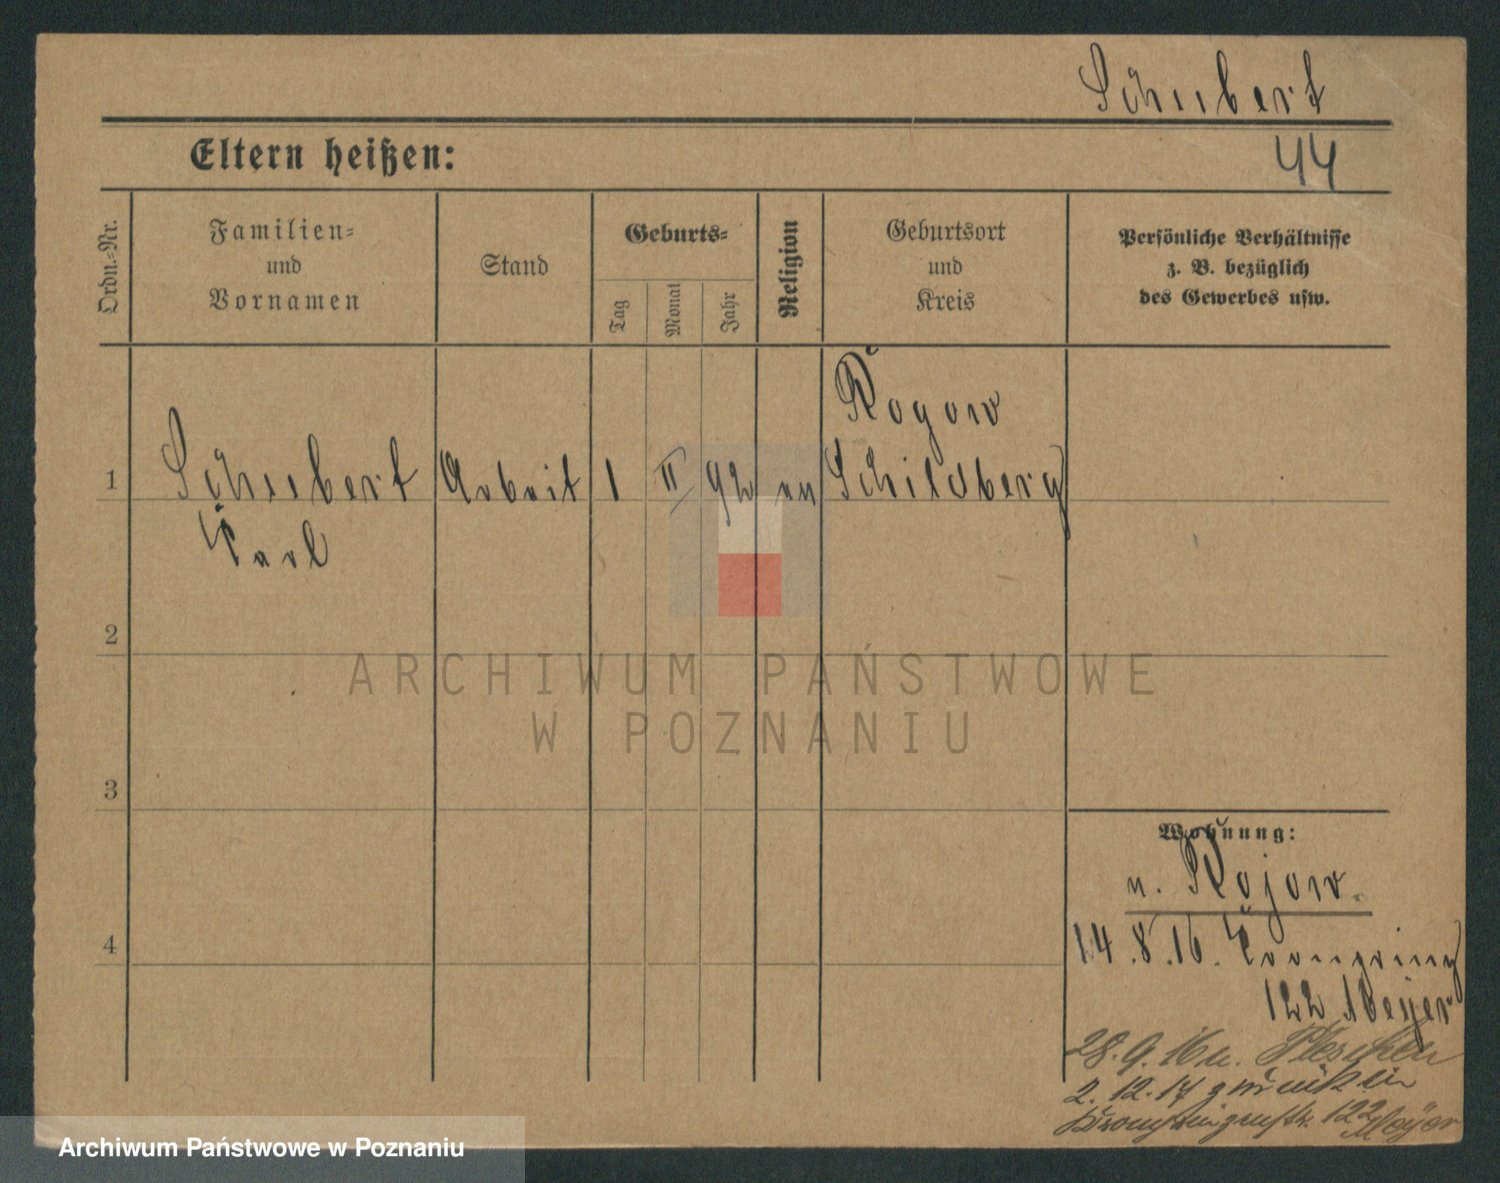 Schubert
44
Eltern heißen:
Ordn.-Nr.
Familien-
und
Vornamen
Stand
Geburts-
Tag
Monat
Jahr
Religion
Geburtsort
und
Kreis
Persönliche Verhältnisse
z. B. bezüglich
des Gewerbes usw.
Rogow
1 Schubert Arbeit 1 II 92 Schildberg
Carl
2
ARCHIWUM PAŃSTWOWE
W POZNANIU
3
Wohnung:
n. Rojow.
4
14.8.16.
122 Meyer
28.9.16 n. Pleschen
2.12.17 zurück in
Kronprinzenstr. 122 Meyer
Archiwum Państwowe w Poznaniu